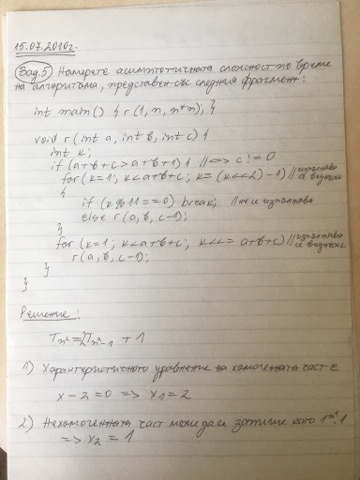 15.07.2010г.
Зад.5) Намерете асимптотичната сложност по време
на алгоритъма, представен със следния фрагмент:
int main() { r(1, n, n*n); }
void r(int a, int b, int c) {
int k;
if (a+b+c > a+b+1) { // <=> c != 0
for (k=1; k<a+b+c; k=(k<<2)-1) // изпълнява се веднъж
{
if (k%11==0) break; // не се изпълнява
else r(a, b, c-1);
}
for (k=1; k<a+b+c; k<<= a+b+c) // изпълнява се веднъж
r(a, b, c-1);
}
}
Решение:
T_n² = 2T_n²-1 + 1
1) Характеристичното уравнение на хомогенната част е
x-2=0 => x₁=2
2) Нехомогенната част може да се запише като 1^n².1
=> x₂ = 1